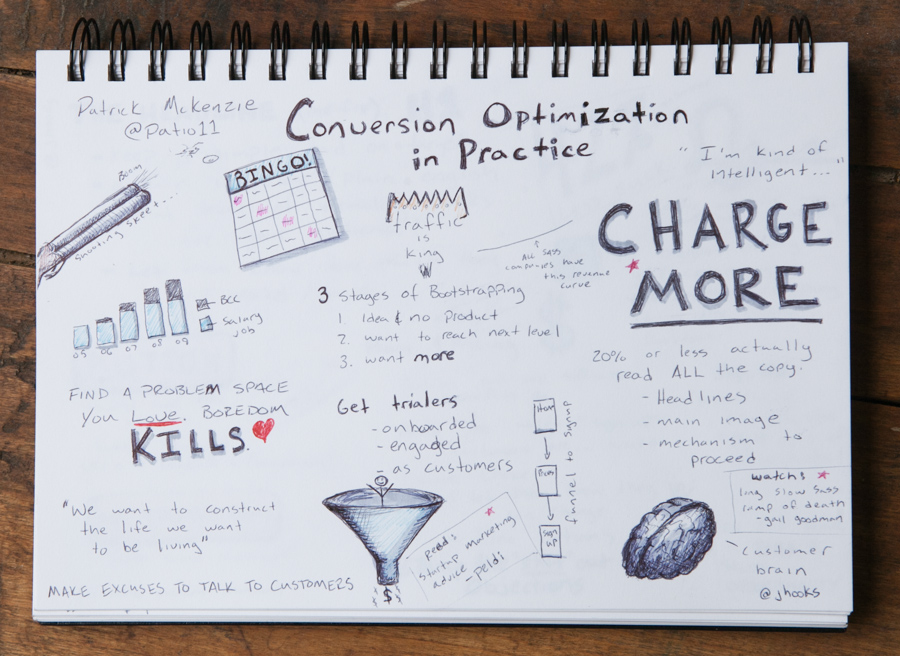 Patrick McKenzie
@patio11
Conversion Optimization
in Practice
"I'm kind of
intelligent..."
Boom
Shooting skeet...
BINGO!
traffic
is
king
All SaSS
companies have
this revenue
curve
CHARGE
MORE
BCC
Salary
job
05 06 07 08 09
3 Stages of Bootstrapping
1. Idea & no Product
2. want to reach next level
3. want more
20% or less actually
read ALL the copy.
- Headlines
- main image
- mechanism to
proceed
FIND A PROBLEM SPACE
YOU Love. BOREDOM
KILLS.
Get trialers
- onboarded
- engaged
- as customers
funnel to signup
Sign
up
"We want to construct
the life we want
to be living"
read:
startup marketing
advice - peldi
$
watch:
long slow SaSS
ramp of death
- gail goodman
customer
brain
@jhooks
MAKE EXCUSES TO TALK TO CUSTOMERS